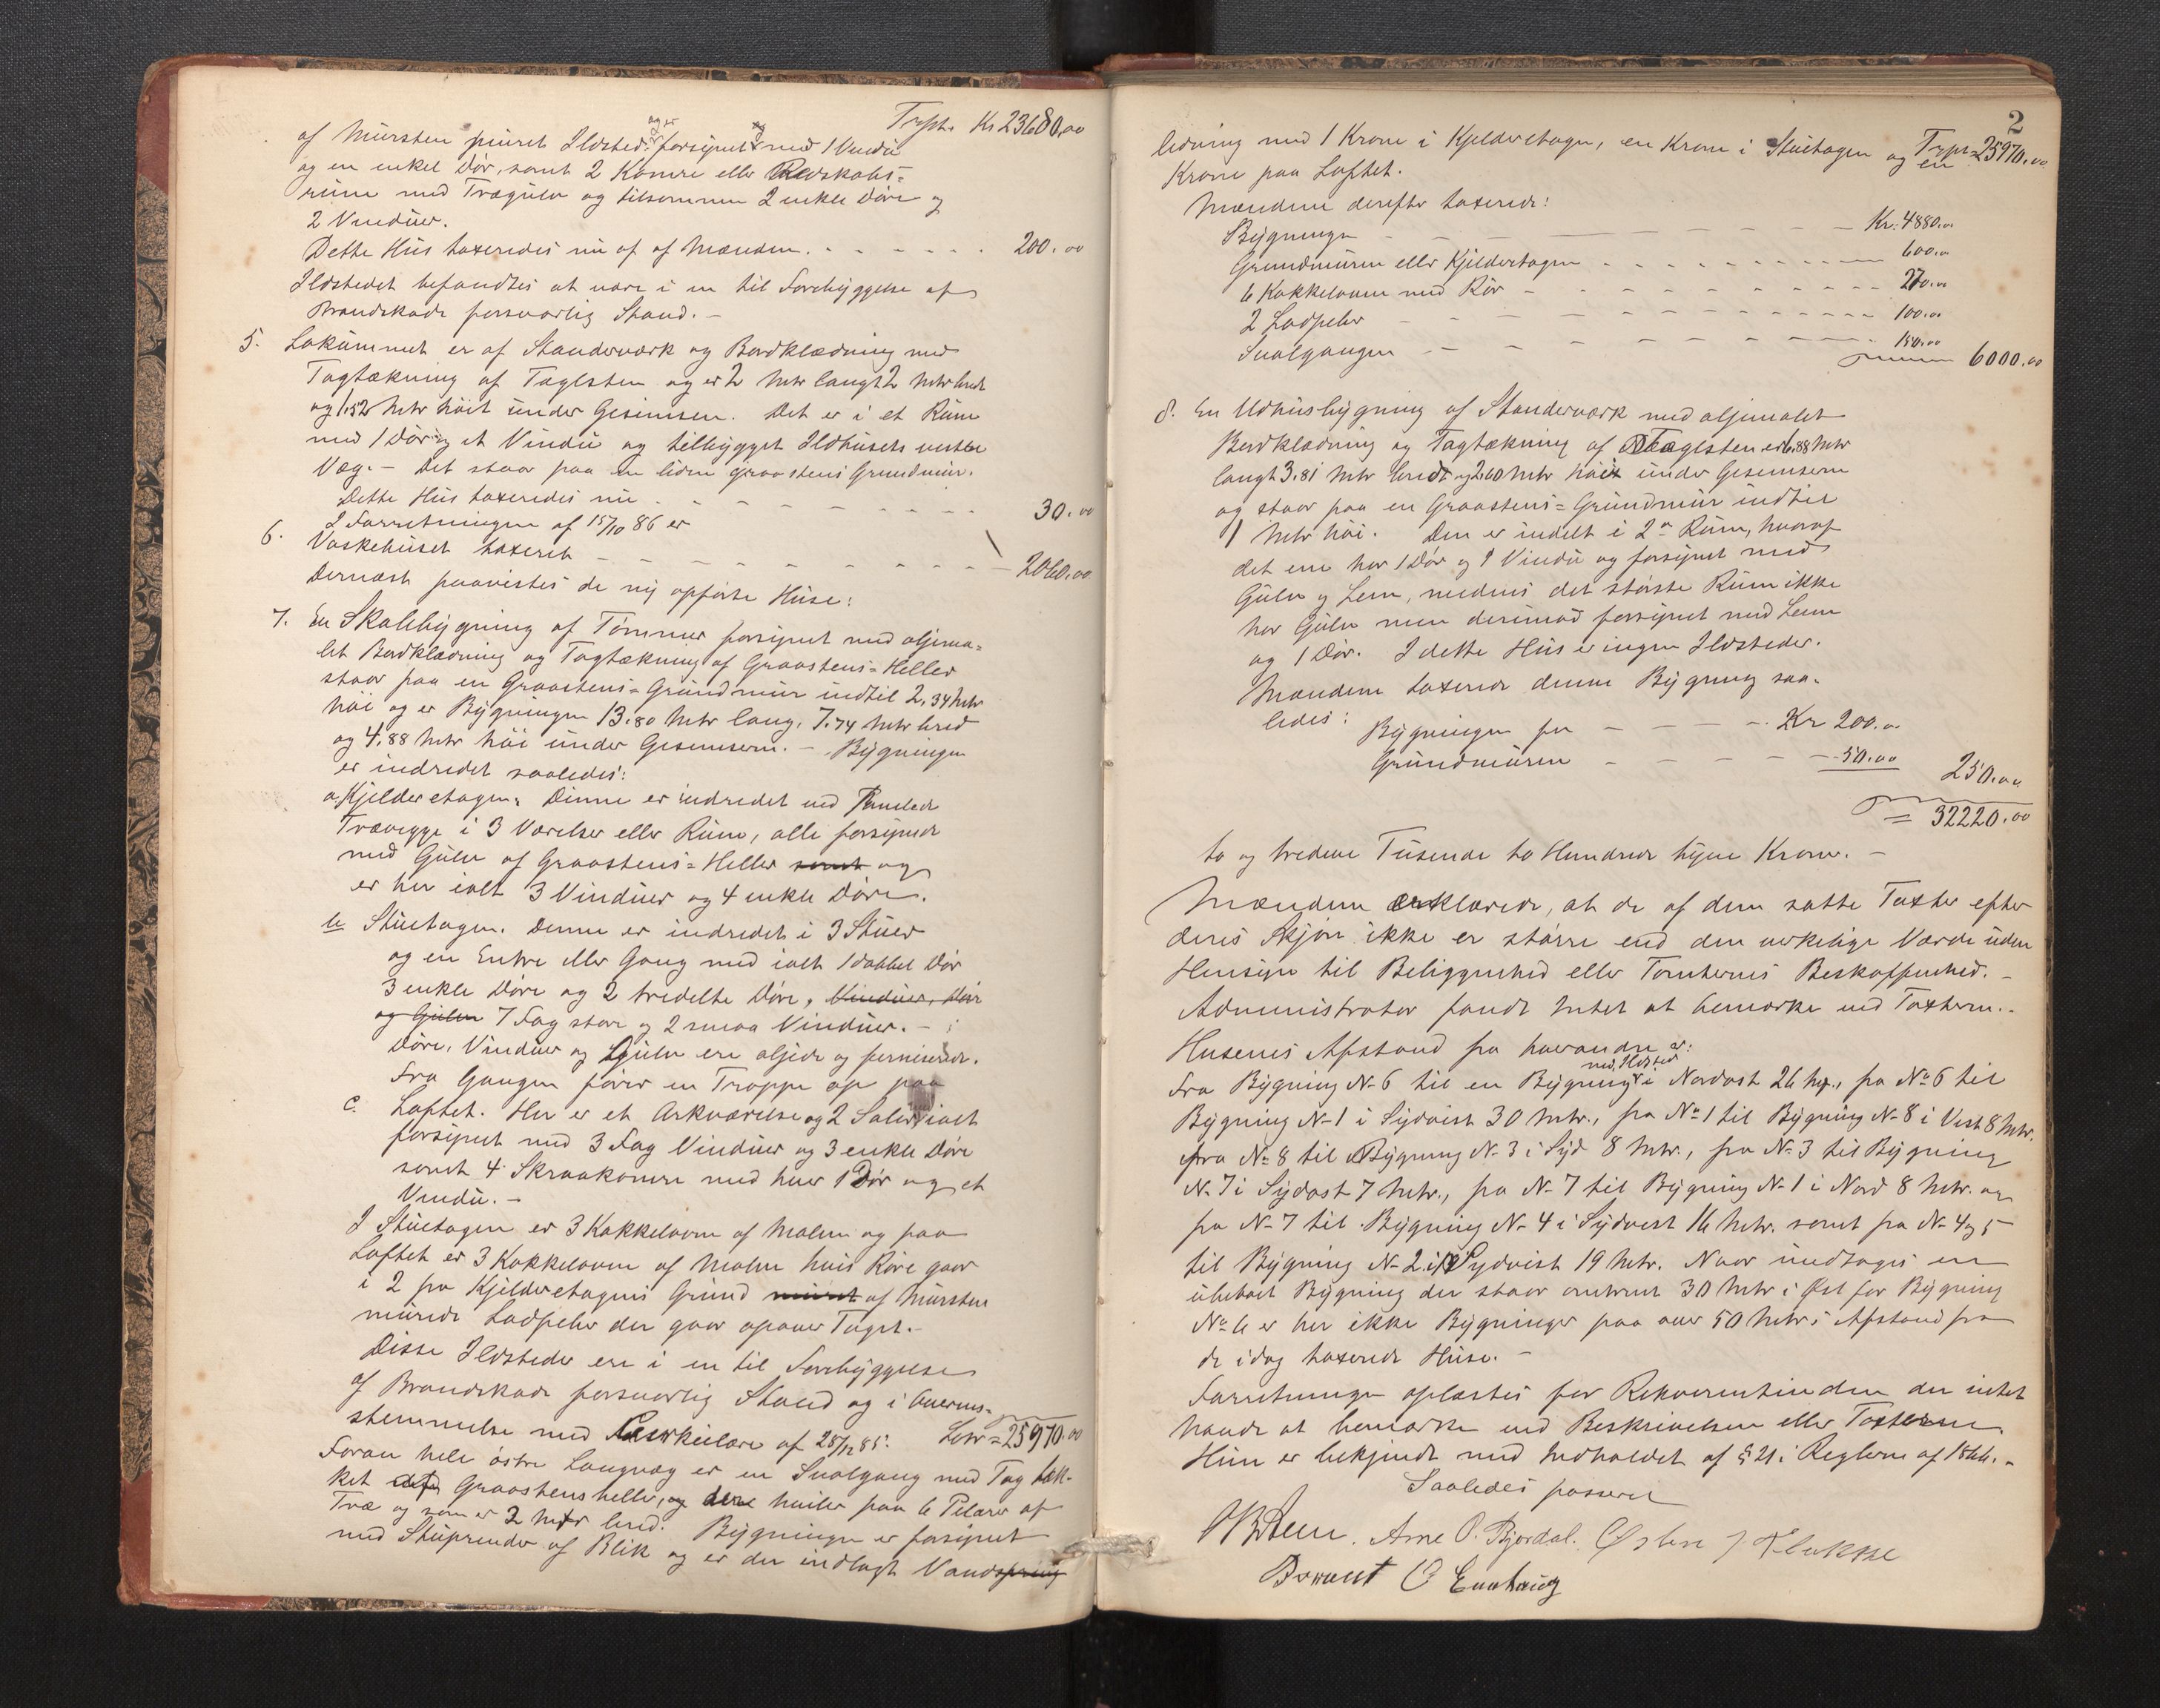 Trpt. Kr 23680.00
af Mursten muret Ildsted. og er forsynet med 1 Vindu
og en enkel Dör, samt 2 Kamre eller Redskabs=
rum med Trægulv og tilsammen 2 enkle Döre og
2 Vinduer.
Dette Hus taxeredes nu af af Mænden. - - - - - - 200.00
Ildstedet befandtes at være i en til Forebyggelse af
Brandskade forsvarlig Stand. -
5. Lokummet er af Standerværk og Bordklædning med
Tagtækning af Taglsten og er 2 Mtr langt 2 Mtr bredt
og 1.52 Mtr höit under Gesimsen. Det er i et Rum
med 1 Dör og et Vindu og tilbygget Ildhusets vestre
Væg. - Det staar paa en liden Graastens Grundmur.
Dette Hus taxeredes nu - - - - - - - - 30.00
I Forretningen af 15/10 86 er
6. Vaskehuset taxeret - - - - - - - - - 2060.00
Dernæst paavistes de ny opförte Huse:
7. En Skalebygning af Tömmer forsynet med oljema=
let Bordklædning og Tagtækning af Graastens=Heller
staar paa en Graastens=Grundmur indtil 2.34 Mtr
höi og er Bygningen 13.80 Mtr lang, 7.74 Mtr bred
og 4.88 Mtr höi under Gesimsern. - Bygningen
er indredet saaledes:
a, Kjelderetagen. Denne er indredet ved Panelede
Trævegge i 3 Værelser eller Rum, alle forsynede
med Gulv af Graastens=Heller samt og
er her ialt 3 Vinduer og 4 enkle Döre.
b Stuetagen. Denne er indredet i 3 Stuer
og en Entre eller Gang med ialt 1 dobbel Dör
3 enkle Döre og 2 tredelte Döre, Vinduer, Dör
og Gulve 7 Fag store og 2 smaa Vinduer. -
Döre, Vinduer og Gulv ere oljede og ferniserede.
Fra Gangen förer en Trappe op paa
c. Loftet. Her er et Arkværelse og 2 Saler, ialt
forsynet med 3 Fag Vinduer og 3 enkle Döre
samt 4 Skraakamre med hver 1 Dör og et
Vindu. -
I Stuetagen er 3 Kakkelovne af Malm og paa
Loftet er 3 Kakkelovne af Malm hvis Röre gaar
i 2 fra Kjelderetagens Grund muret af Mursten
murede Ladpeler der gaar opover Taget. -
Disse Ildsteder ere i en til Forebyggelse
af Brandskade forsvarlig Stand og i Overens=
stemmelse med Circulære af 28/12 85. Latr = 25970.00
Foran hele östre Langvæg er en Svalgang med Tag tæk-
ket af Graastensheller, og dere hviler paa 6 Pelarer af
Træ og som er 2 Mtr bred. Bygningen er forsynet
med Stuprender af Blik og er der indlagt Vandspring
2
Trpt = 25970.00
ledning med 1 Krane i Kjelderetagen, en Krane i Stuetagen og en
Krane paa Loftet.
Mændene derefter taxerede:
Bygningen - - - - - Kr. 4880.00
Grundmuren eller Kjelderetagen - - - - - 600.00
6 Kakkelovne med Rör - - - - - 270.00
2 Ladpeler - - - - - 100.00
Svalgangen - - - - - 150.00
6000.00
8. En Udhusbygning af Standerværk med oljemalet
Bordklædning og Tagtækning af Taglsten er 6.88 Mtr
langt 3.81 Mtr bredt og 2.60 Mtr höit under Gesimsern
og staar paa en Graastens=Grundmur indtil
1 Mtr höi. Den er indelt i 2 Rum, hvoraf
det ene har 1 Dör og 1 Vindu og forsynet med
Gulv og Lem, medens det störste Rum ikke
har Gulv men derimod forsynet med Lem
og 1 Dör. I dette Hus er ingen Ildsteder.
Mændene taxerede denne Bygning saa-
ledes:
Bygningen for - - - - Kr 200.00
Grundmuren - - - - - 50.00
250.00
= 32220.00
to og tredeve Tusende to Hundrede tyve Kroner. -
Mændene erklærede, at de af dem satte Taxter efter
deres Skjön ikke er större end den virkelige Værdi uden
Hensyn til Beliggenhed eller Tomternes Beskaffenhed. -
Administrator fandt Intet at bemærke ved Taxterne. -
Husenes Afstand fra hverandre er:
Fra Bygning No 6 til en Bygning med Ildsted i Nordost 26 Mtr., fra No 6 til
Bygning No 1 i Sydvest 30 Mtr., fra No 1 til Bygning No 8 i Vest 8 Mtr.
fra No 8 til Bygning No 3 i Syd 8 Mtr., fra No 3 til Bygning
No 7 i Sydost 7 Mtr., fra No 7 til Bygning No 1 i Nord 8 Mtr. og
fra No 7 til Bygning No 4 i Sydvest 16 Mtr. samt fra No 4 og 5
til Bygning No 2 i Sydvest 19 Mtr. Naar undtages en
ubeboet Bygning der staar omtrent 30 Mtr i Öst for Bygning
No 6 er her ikke Bygninger paa over 50 Mtrs Afstand fra
de idag taxerede Huse. -
Forretningen oplæstes for Rekvirentinden der intet
havde at bemærke ved Beskrivelsen eller Taxterne
Hun er bekjendt med Indholdet af § 21 i Reglerne af 1846. -
Saaledes passeret
Arne O. Bjordal. Östen J Flukke
Berent O Envhaug